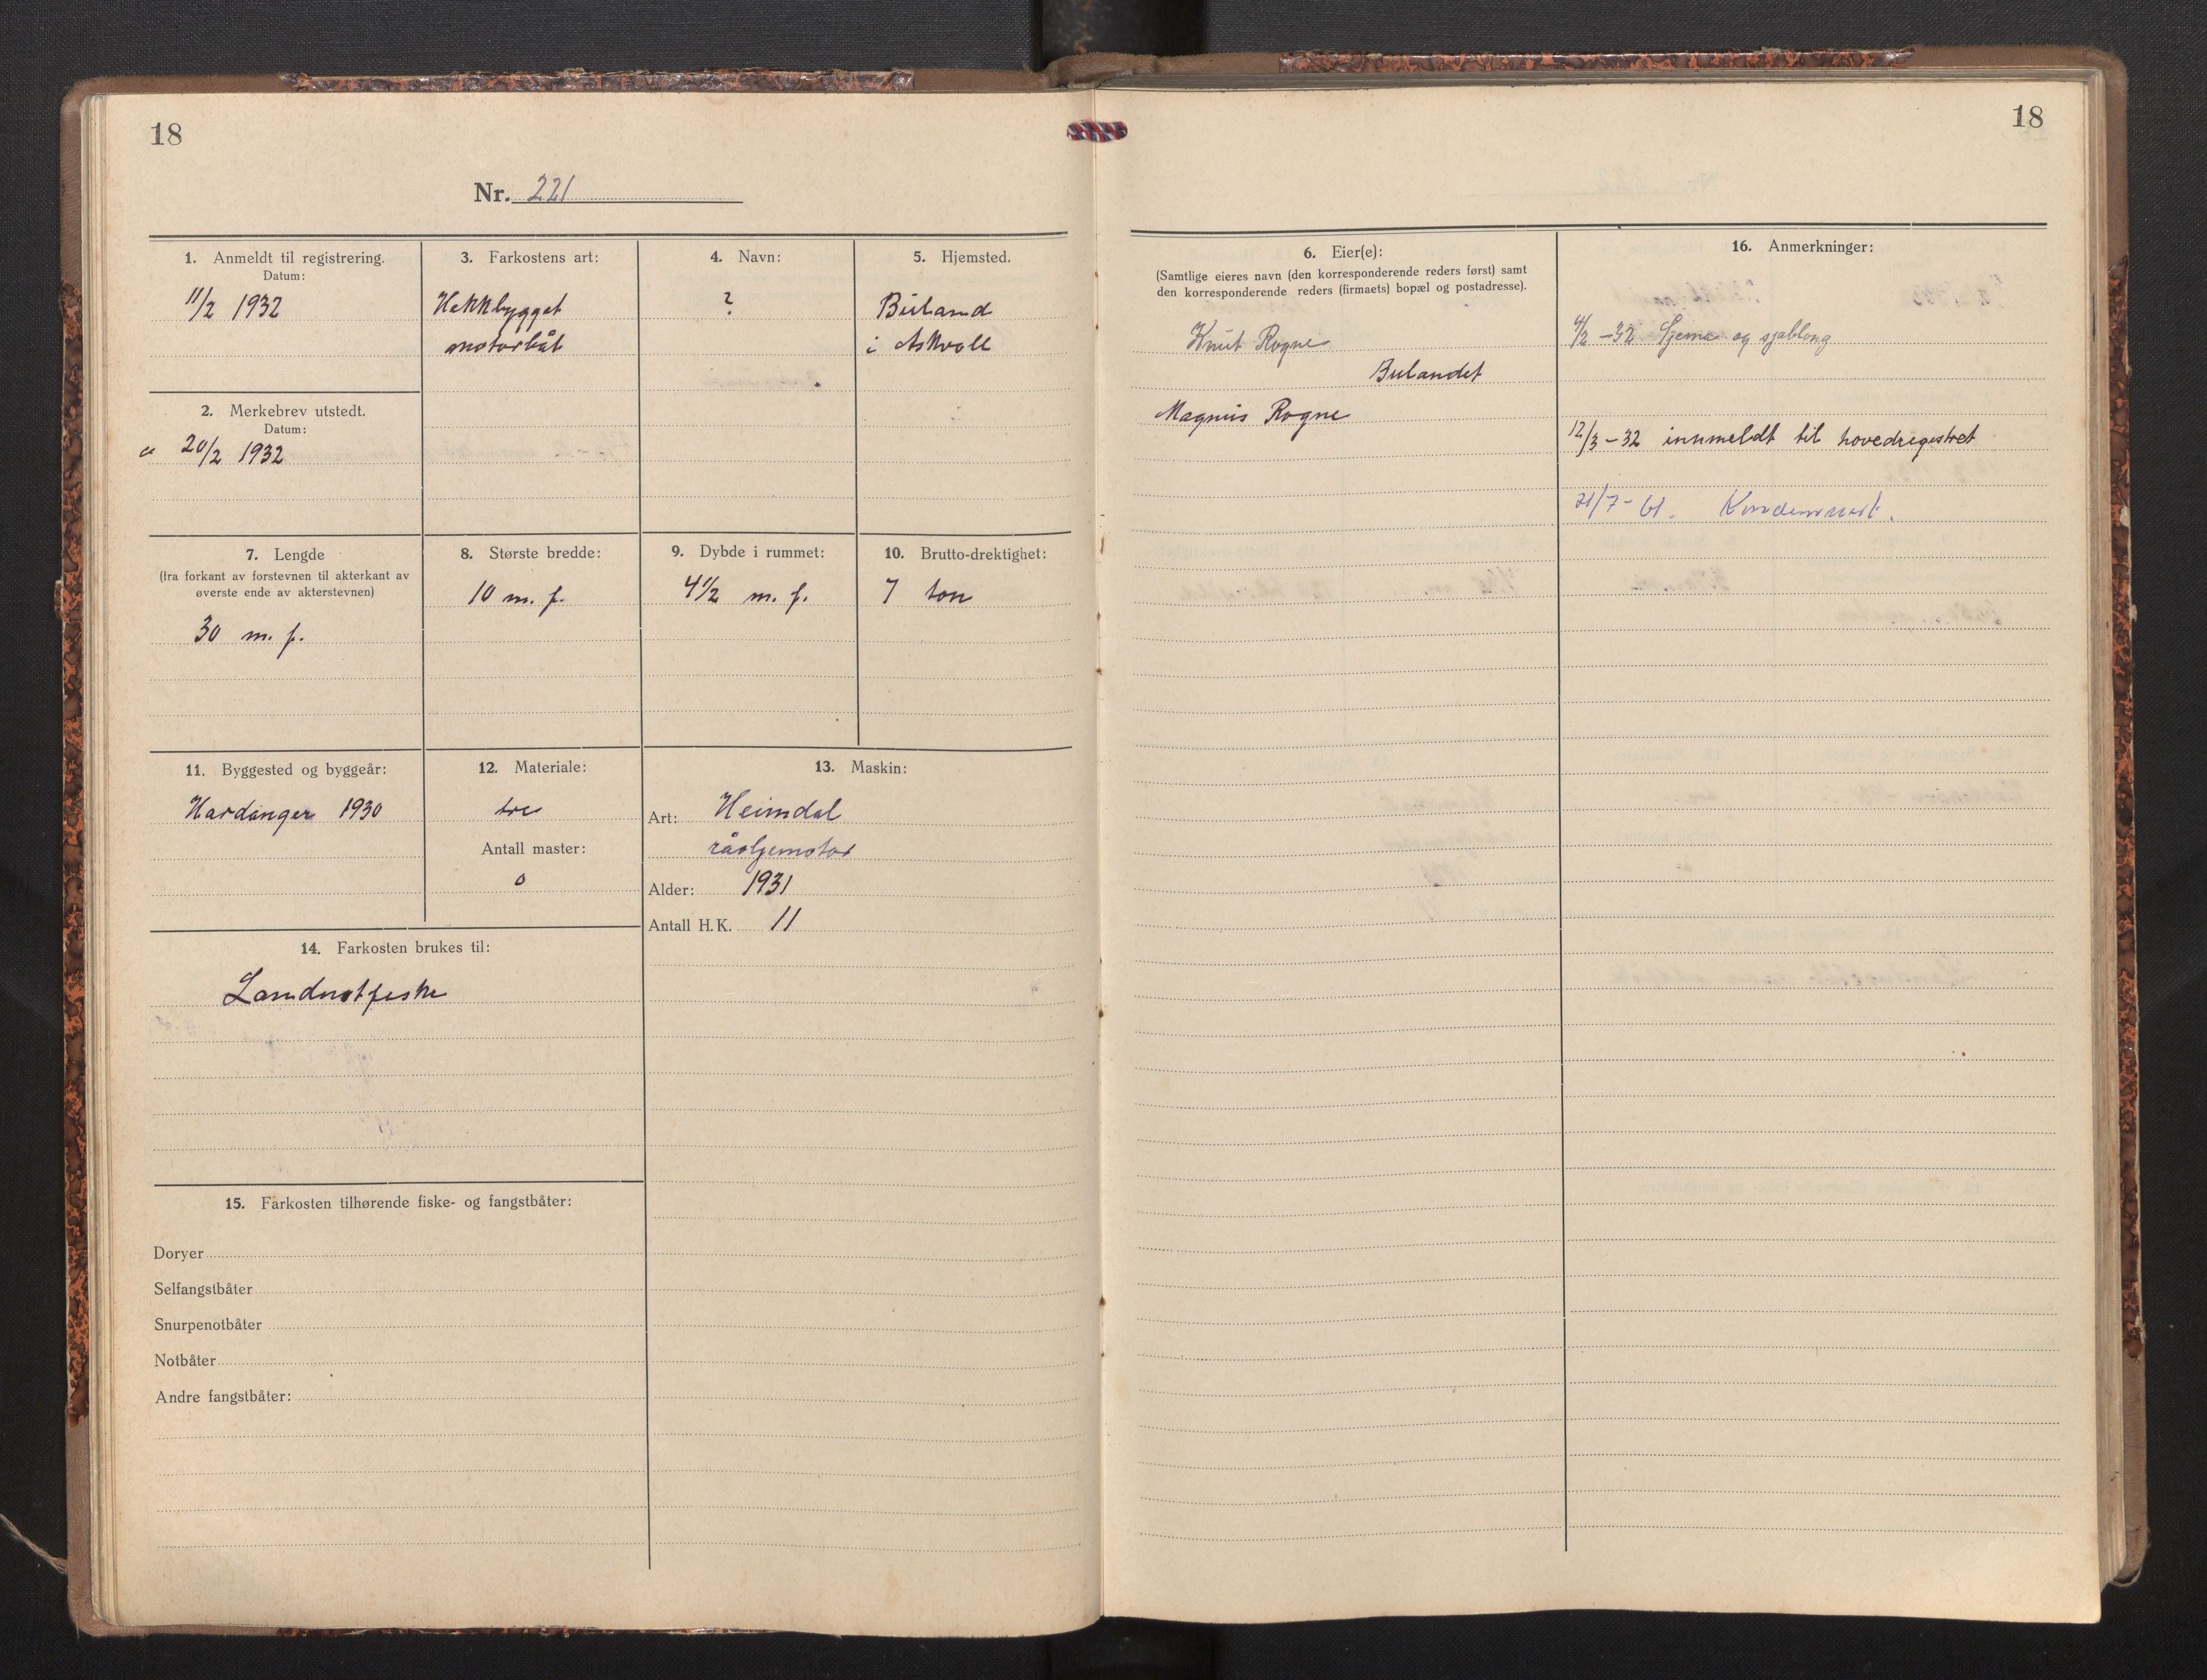 18
Nr. 221
1. Anmeldt til registrering.
Datum:
11/2 1932
2. Merkebrev utstedt.
Datum:
20/2 1932
3. Farkostens art:
Hekkbygget
motorbåt
4. Navn:
?
5. Hjemsted.
Buland
i Askvoll
7. Lengde
(fra forkant av forstevnen til akterkant av
øverste ende av akterstevnen)
30 m. f.
8. Største bredde:
10 m. f.
9. Dybde i rummet:
4 1/2 m. f.
10. Brutto-drektighet:
7 ton
11. Byggested og byggeår:
Hardanger 1930
12. Materiale:
tre
Antall master:
0
13. Maskin:
Art: Heimdal
råoljemotor
Alder: 1931
Antall H.K. 11
14. Farkosten brukes til:
Landnotfiske
15. Farkosten tilhørende fiske- og fangstbåter:
Doryer
Selfangstbåter
Snurpenotbåter
Notbåter
Andre fangstbåter:
18
6. Eier(e):
(Samtlige eieres navn (den korresponderende reders først) samt
den korresponderende reders (firmaets) bopæl og postadresse).
Knut Rogne
Bulandet
Magnus Rogne
16. Anmerkninger:
-32 Sjema og sjablong
12/3 -32 innmeldt til hovedregistret
21/7 - 61. Kondemnert.